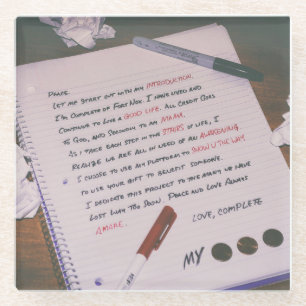 Peace.
Let me start out with my introduction.
I'm Complete of Fort Nox. I have lived and
Continue to live a good life. All credit goes
to God, and secondly to my Mama.
As I take each step in the stairs of life, I
realize we are all in need of an awakening
I choose to use my platform to show u the way
to use your gift to benefit someone.
I dedicate this project to the many we have
lost way too soon. Peace and love always
Amore.
Love, Complete
MY